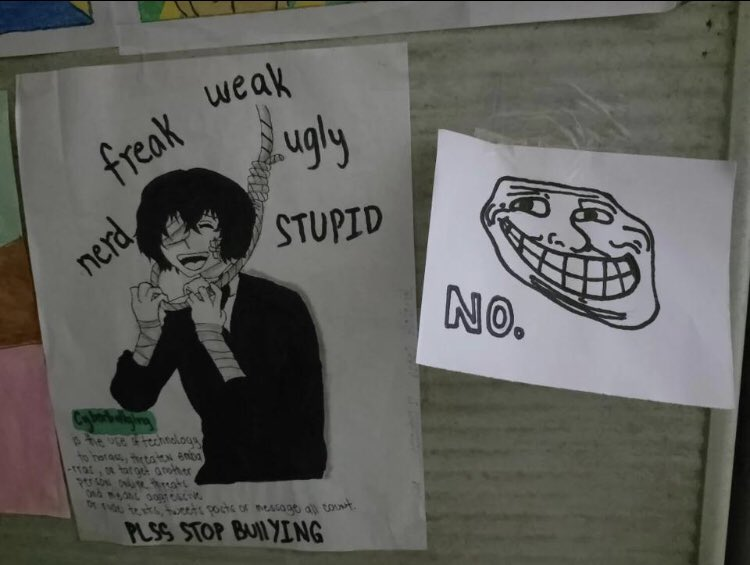 weak
freak
ugly
nerd
STUPID
Cyberbullying
is the use of technology
to harass, threaten emba
-rras, or target another
person online threats
and means aggressive
or rude texts, tweets posts or message all count.
PLSS STOP BUllYING
NO.